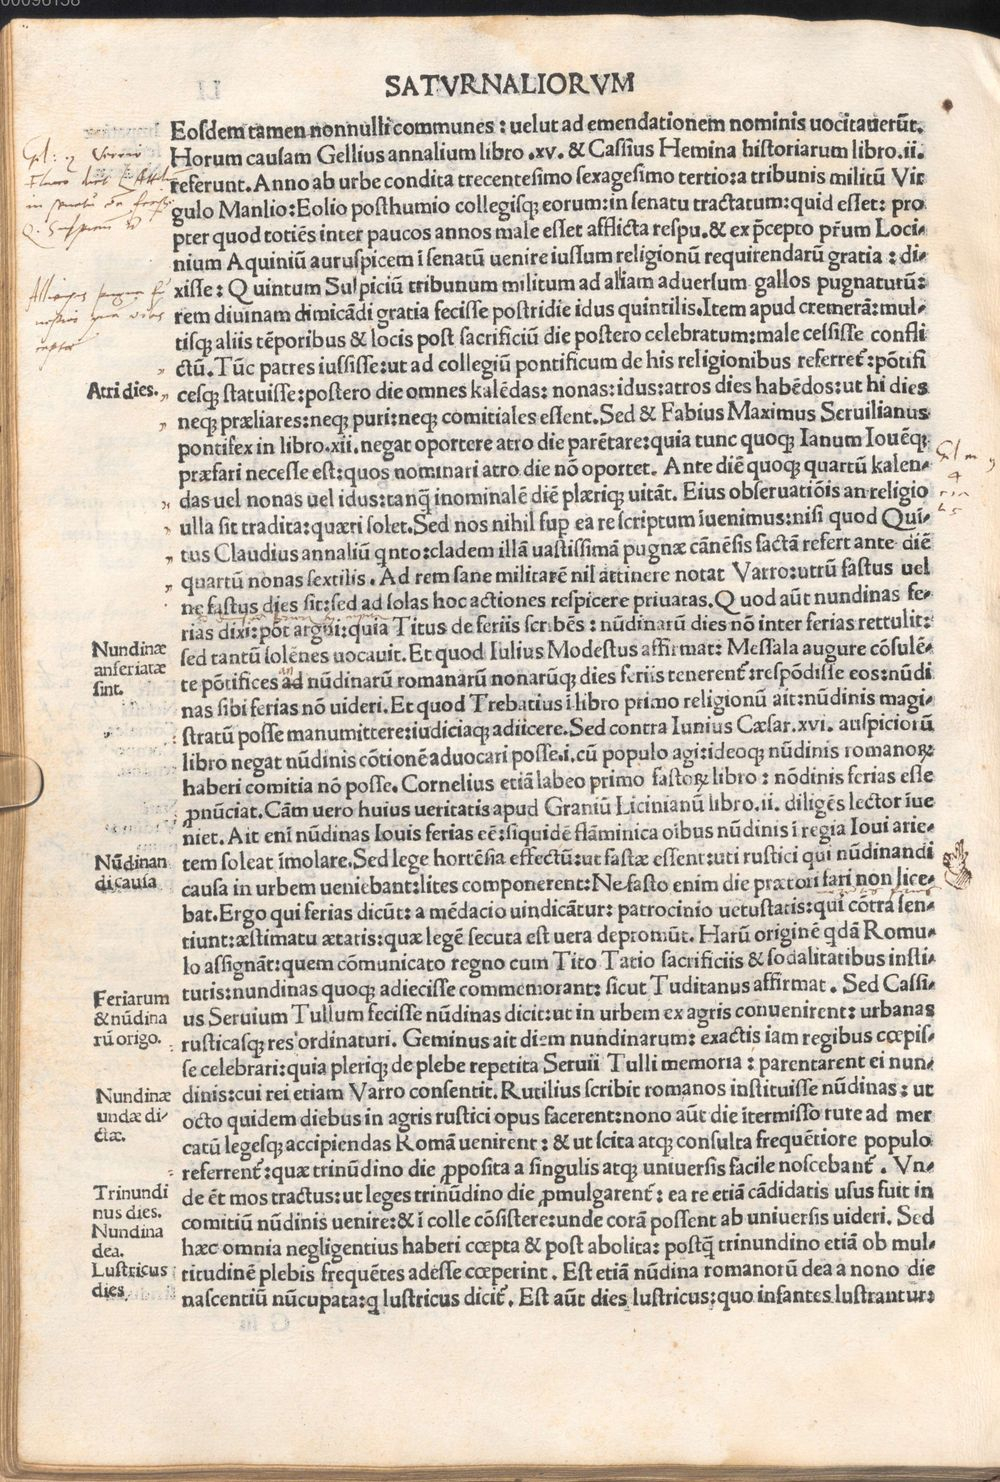 SATVRNALIORVM
Eoſdem tamen nonnulli communes : uelut ad emendationem nominis uocitauerūt.
Horum cauſam Gellius annalium libro .xv. & Caſſius Hemina hiſtoriarum libro.ii.
referunt. Anno ab urbe condita trecenteſimo ſexageſimo tertio:a tribunis militū Vir
gulo Manlio:Eolio poſthumio collegiſqꝫ eorum:in ſenatu tractatum:quid eſſet: pro
pter quod totiēs inter paucos annos male eſſet afflicta reſpu.& ex p̄cepto pr̄um Loci-
nium Aquiniū auruſpicem ī ſenatū uenire iuſſum religionū requirendarū gratia : di-
xiſſe: Quintum Sulpiciū tribunum militum ad aliam aduerſum gallos pugnaturū:
rem diuinam dimicādi gratia feciſſe poſtridie idus quintilis.Item apud cremerā:mul-
tiſqꝫ aliis tēporibus & locis poſt ſacrificiū die poſtero celebratum:male ceſſiſſe confli
ctū. Tūc patres iuſſiſſe:ut ad collegiū pontificum de his religionibus referret̄:pōtifi
Atri dies.
ceſqꝫ ſtatuiſſe:poſtero die omnes kalēdas: nonas:idus:atros dies habēdos:ut hi dies
neqꝫ præliares:neqꝫ puri:neqꝫ comitiales eſſent.Sed & Fabius Maximus Seruilianus
pontifex in libro.xii. negat oportere atro die parētare:quia tunc quoqꝫ Ianum Iouēqꝫ
præfari neceſſe eſt:quos nominari atro die nō oportet. Ante diē quoqꝫ quartū kalen-
das uel nonas uel idus:tanq̄ inominalē diē plæriqꝫ uitāt. Eius obſeruatiōis an religio
ulla ſit tradita:quæri ſolet.Sed nos nihil ſuꝑ ea re ſcriptum īuenimus:niſi quod Qui-
tus Claudius annaliū qnto:cladem illā uaſtiſſimā pugnæ cānēſis factā refert ante diē
quartū nonas ſextilis. Ad rem ſane militarē nil attinere notat Varro:utrū faſtus uel
ne faſtus dies ſit:ſed ad ſolas hoc actiones reſpicere priuatas.Quod aūt nundinas fe-
rias dixi:pōt argui:quia Titus de feriis ſcribēs : nūdinarū dies nō inter ferias rettulit:
Nundinæ
an feriatæ
ſint.
ſed tantū ſolēnes uocauit. Et quod Iulius Modeſtus affirmat: Meſſala augure cōſulē-
te pōtifices ad nūdinarū romanarū nonarūqꝫ dies feriis tenerent̄:reſpōdiſſe eos:nūdi
nas ſibi ferias nō uideri. Et quod Trebatius ī libro primo religionū ait:nūdinis magi-
ſtratū poſſe manumittere:iudiciaqꝫ adiicere. Sed contra Iunius Cæſar.xvi. auſpiciorū
libro negat nūdinis cōtionē aduocari poſſe.i.cū populo agi:ideoqꝫ nūdinis romanoꝝ
haberi comitia nō poſſe. Cornelius etiā labeo primo faſtoꝝ libro : nōdinis ferias eſſe
ꝓnūciat. Cām uero huius ueritatis apud Graniū Licinianū libro.ii. diligēs lector īue
niet. Ait enī nūdinas Iouis ferias eē:ſiquidē flāminica oībus nūdinis ī regia Ioui arie-
Nūdinan
di cauſa
tem ſoleat īmolare. Sed lege hortēſia effectū:ut faſtæ eſſent:uti ruſtici qui nūdinandi
cauſa in urbem ueniebant:lites componerent: Ne faſto enim die prætori fari non lice-
bat.Ergo qui ferias dicūt: a mēdacio uindicātur: patrocinio uetuſtatis:qui cōtra ſen-
tiunt:æſtimatu ætatis:quæ legē ſecuta eſt uera depromūt. Harū originē qdā Romu-
lo aſſignāt:quem cōmunicato regno cum Tito Tatio ſacrificiis & ſodalitatibus inſti-
Feriarum
& nūdina
rū origo.
tutis:nundinas quoqꝫ adieciſſe commemorant: ſicut Tuditanus affirmat. Sed Caſſi-
us Seruium Tullum feciſſe nūdinas dicit:ut in urbem ex agris conuenirent: urbanas
ruſticaſqꝫ res ordinaturi. Geminus ait diem nundinarum: exactis iam regibus cœpiſ-
ſe celebrari:quia pleriqꝫ de plebe repetita Seruii Tulli memoria : parentarent ei nun-
Nundinæ
undæ di-
ctæ.
dinis:cui rei etiam Varro conſentit. Rutilius ſcribit romanos inſtituiſſe nūdinas : ut
octo quidem diebus in agris ruſtici opus facerent:nono aūt die ītermiſſo rure ad mer
catū legeſqꝫ accipiendas Romā uenirent : & ut ſcita atqꝫ conſulta frequētiore populo
referrent̄:quæ trinūdino die ꝓpoſita a ſingulis atqꝫ uniuerſis facile noſcebant̄. Vn-
Trinundi
nus dies.
Nundina
dea.
Luſtricus
dies
de ēt mos tractus:ut leges trinūdino die ꝓmulgarent̄: ea re etiā cādidatis uſus fuit in
comitiū nūdinis uenire:& ī colle cōſiſtere:unde corā poſſent ab uniuerſis uideri. Sed
hæc omnia negligentius haberi cœpta & poſt abolita: poſtq̄ trinundino etiā ob mul-
titudinē plebis frequētes adeſſe cœperint. Eſt etiā nūdina romanorū dea a nono die
naſcentiū nūcupata:q luſtricus dicit̄. Eſt aūt dies luſtricus:quo infantes luſtrantur: